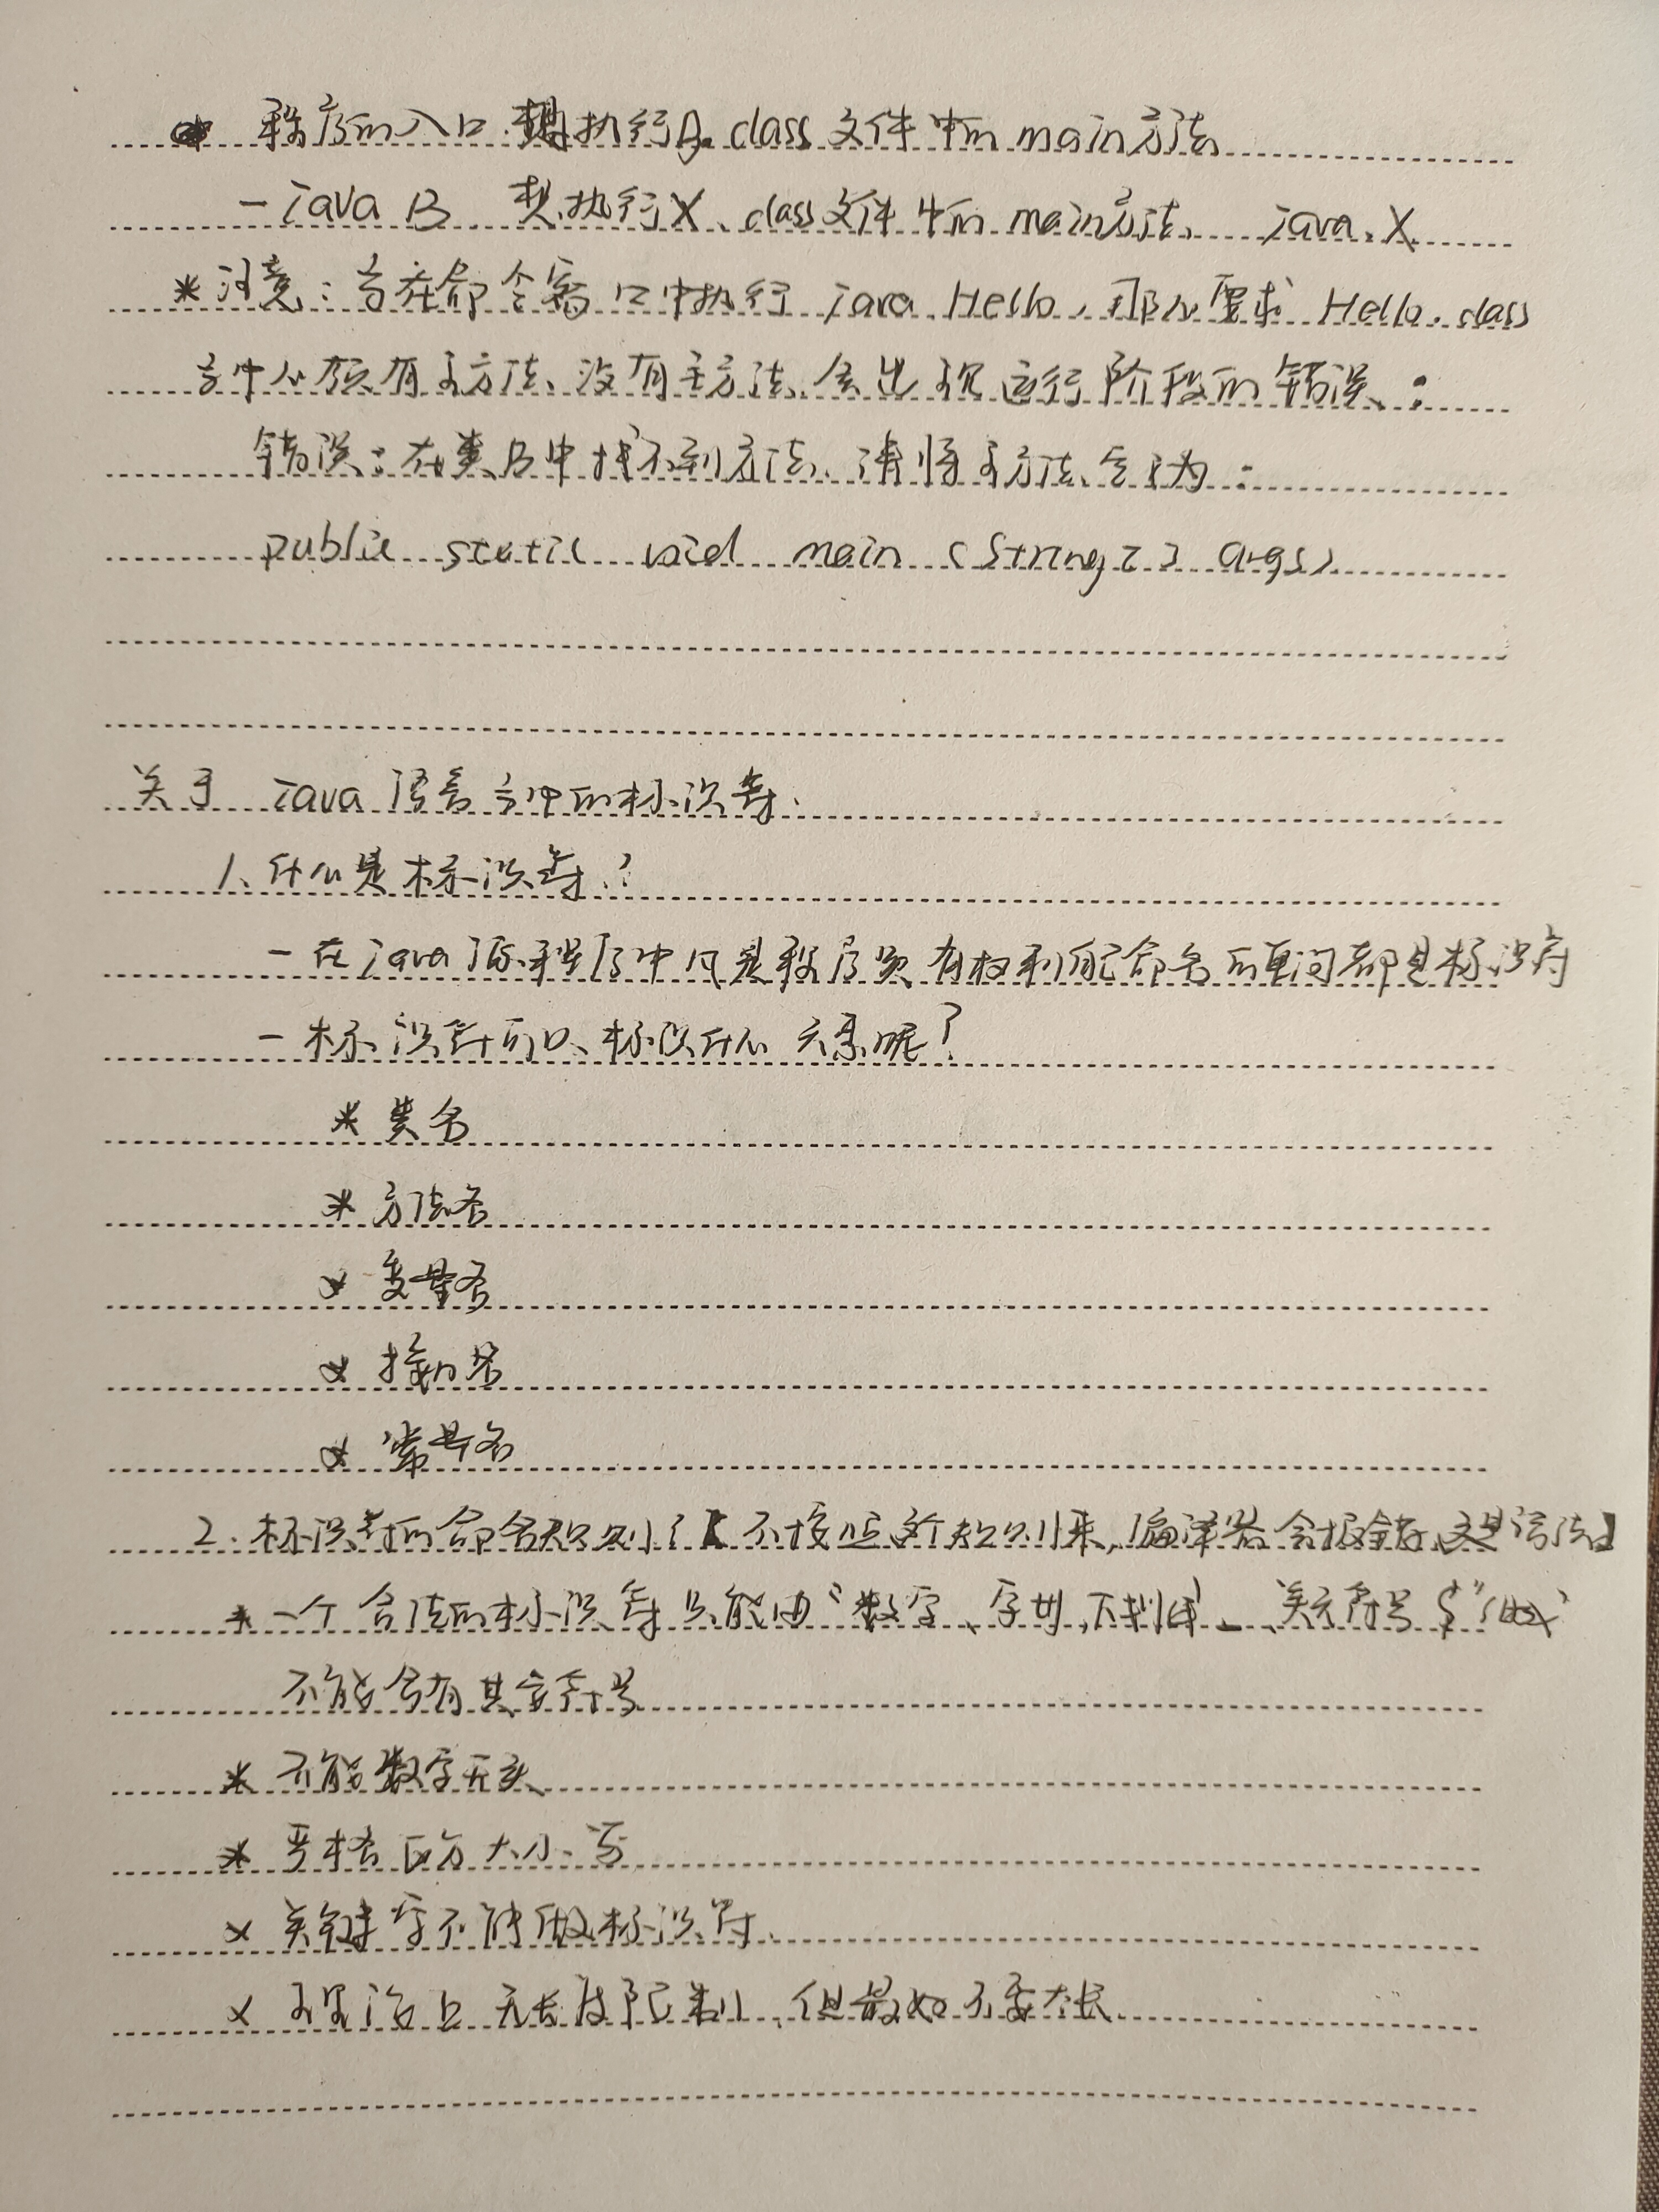 * 程序的入口.想执行B.class文件中的main方法
- java B 想执行X.class文件中的main方法. java X
* 注意:当在命令窗口中执行 java Hello, 那么要求 Hello.class
当中必须有主方法、没有主方法会出现运行阶段的错误、:
错误:在类B中找不到方法、请将主方法定义为:
public static void main (String[] args)
关于 java 语言当中的标识符.
1、什么是标识符.?
- 在java源程序中凡是程序员有权利命名的单词都是标识符
- 标识符可以标识什么 元素呢?
* 类名
* 方法名
* 变量名
* 接口名
* 常量名
2.标识符的命名规则【不按照这个规则来,编译器会报错,这是语法】
* 一个合法的标识符只能由"数字、字母,下划线_、美元符号$"
不能含有其它符号
* 不能数字开头
* 严格区分大小写
* 关键字不能做标识符.
* 理论上无长度限制,但最好不要太长.